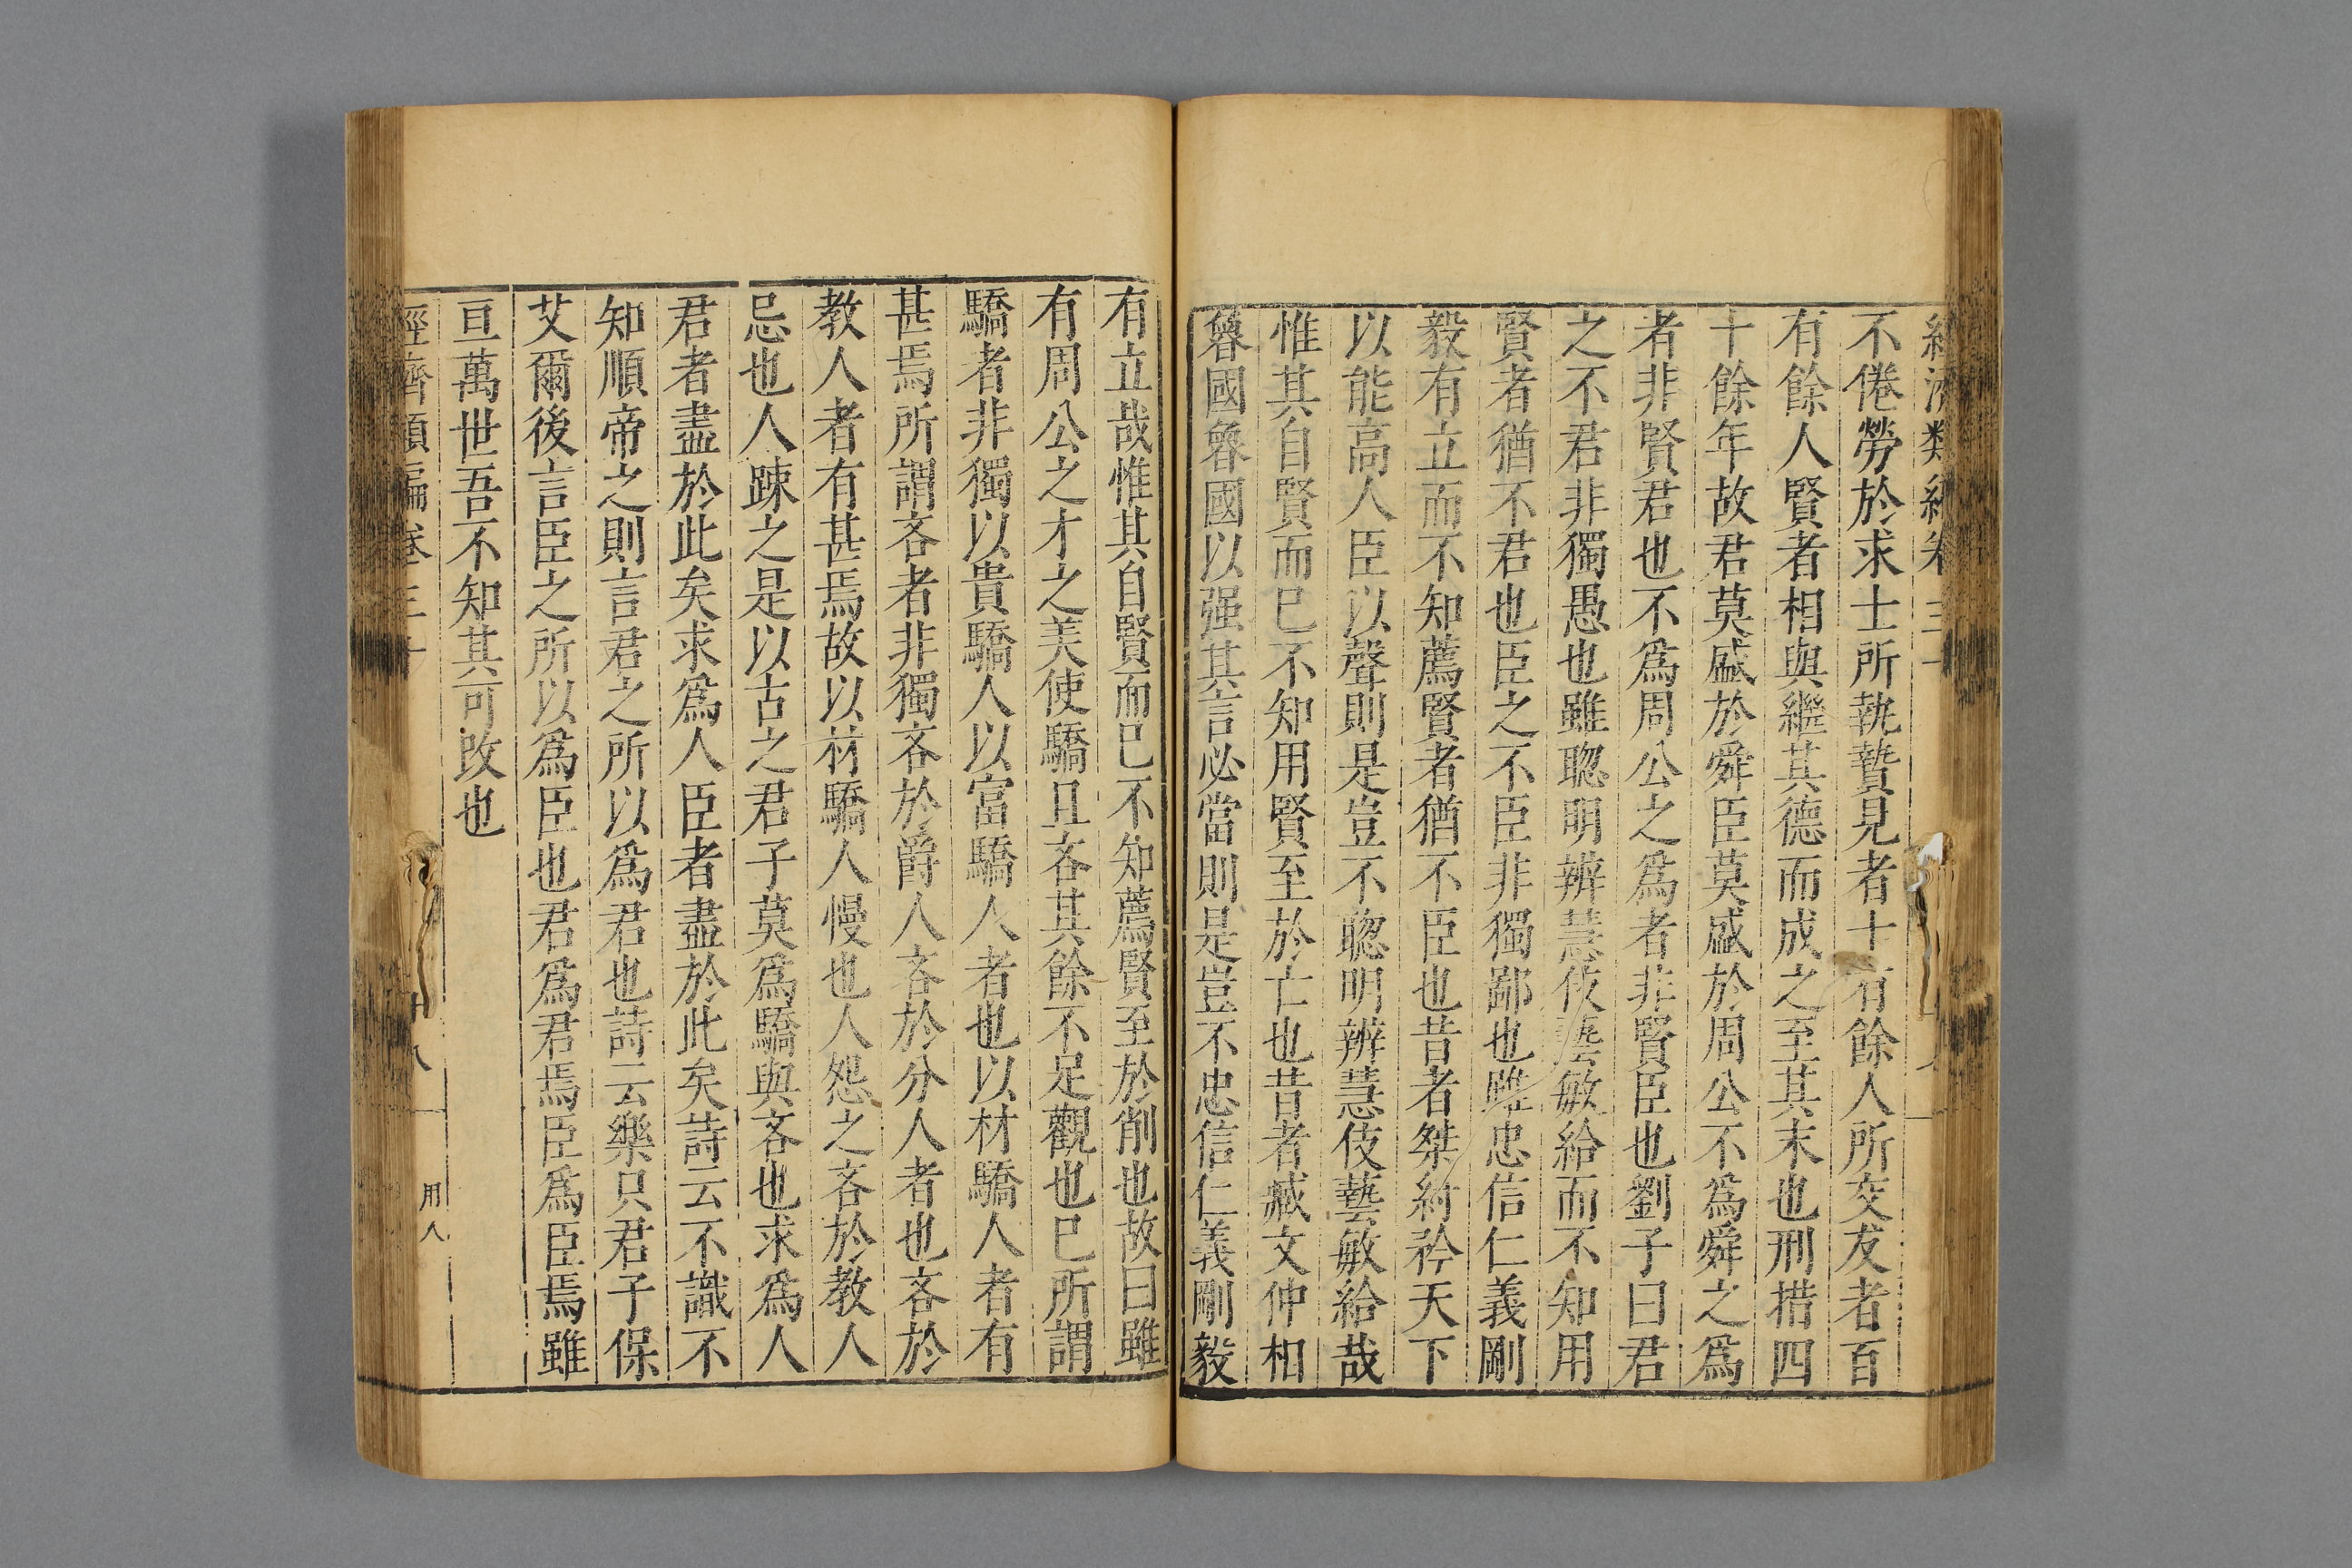 不倦勞於求士所執贄見者十有餘人所交友者百
有餘人賢者相與繼其德而成之至其末也刑措四
十餘年故君莫盛於舜臣莫盛於周公不爲舜之爲
者非賢君也不爲周公之爲者非賢臣也劉子曰君
之不君非獨愚也雖聦明辨慧伎藝敏給而不知用
賢者猶不君也臣之不臣非獨鄙也雖忠信仁義剛
毅有立而不知薦賢者猶不臣也昔者桀紂矜天下
以能高人臣以聲則是豈不聦明辨慧伎藝敏給哉
惟其自賢而已不知用賢至於亡也昔者臧文仲相
魯國魯國以强其言必當則是豈不忠信仁義剛毅
有立哉惟其自賢而已不知薦賢至於削也故曰雖
有周公之才之美使驕且吝其餘不足觀也已所謂
驕者非獨以貴驕人以富驕人者也以材驕人者有
甚焉所謂吝者非獨吝於爵人吝於分人者也吝於
教人者有甚焉故以材驕人慢也人怨之吝於教人
忌也人踈之是以古之君子莫爲驕與吝也求爲人
君者盡於此矣求爲人臣者盡於此矣詩云不識不
知順帝之則言君之所以爲君也詩云樂只君子保
艾爾後言臣之所以爲臣也君爲君焉臣爲臣焉雖
亘萬世吾不知其可改也
經濟類編卷三十
十八
用人